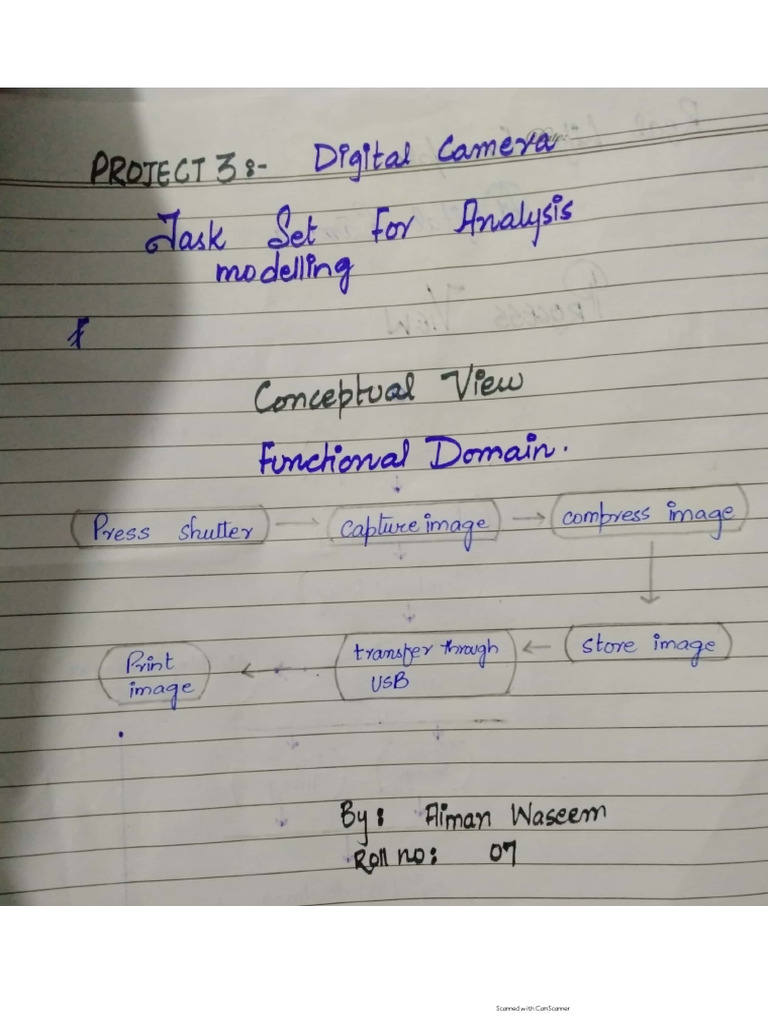 PROJECT 3:- Digital Camera
Task Set For Analysis
modelling
Conceptual View
Functional Domain.
Press shutter → capture image → compress image
Print image ← transfer through USB ← store image
By: Aiman Waseem
Roll no: 07
Scanned with CamScanner